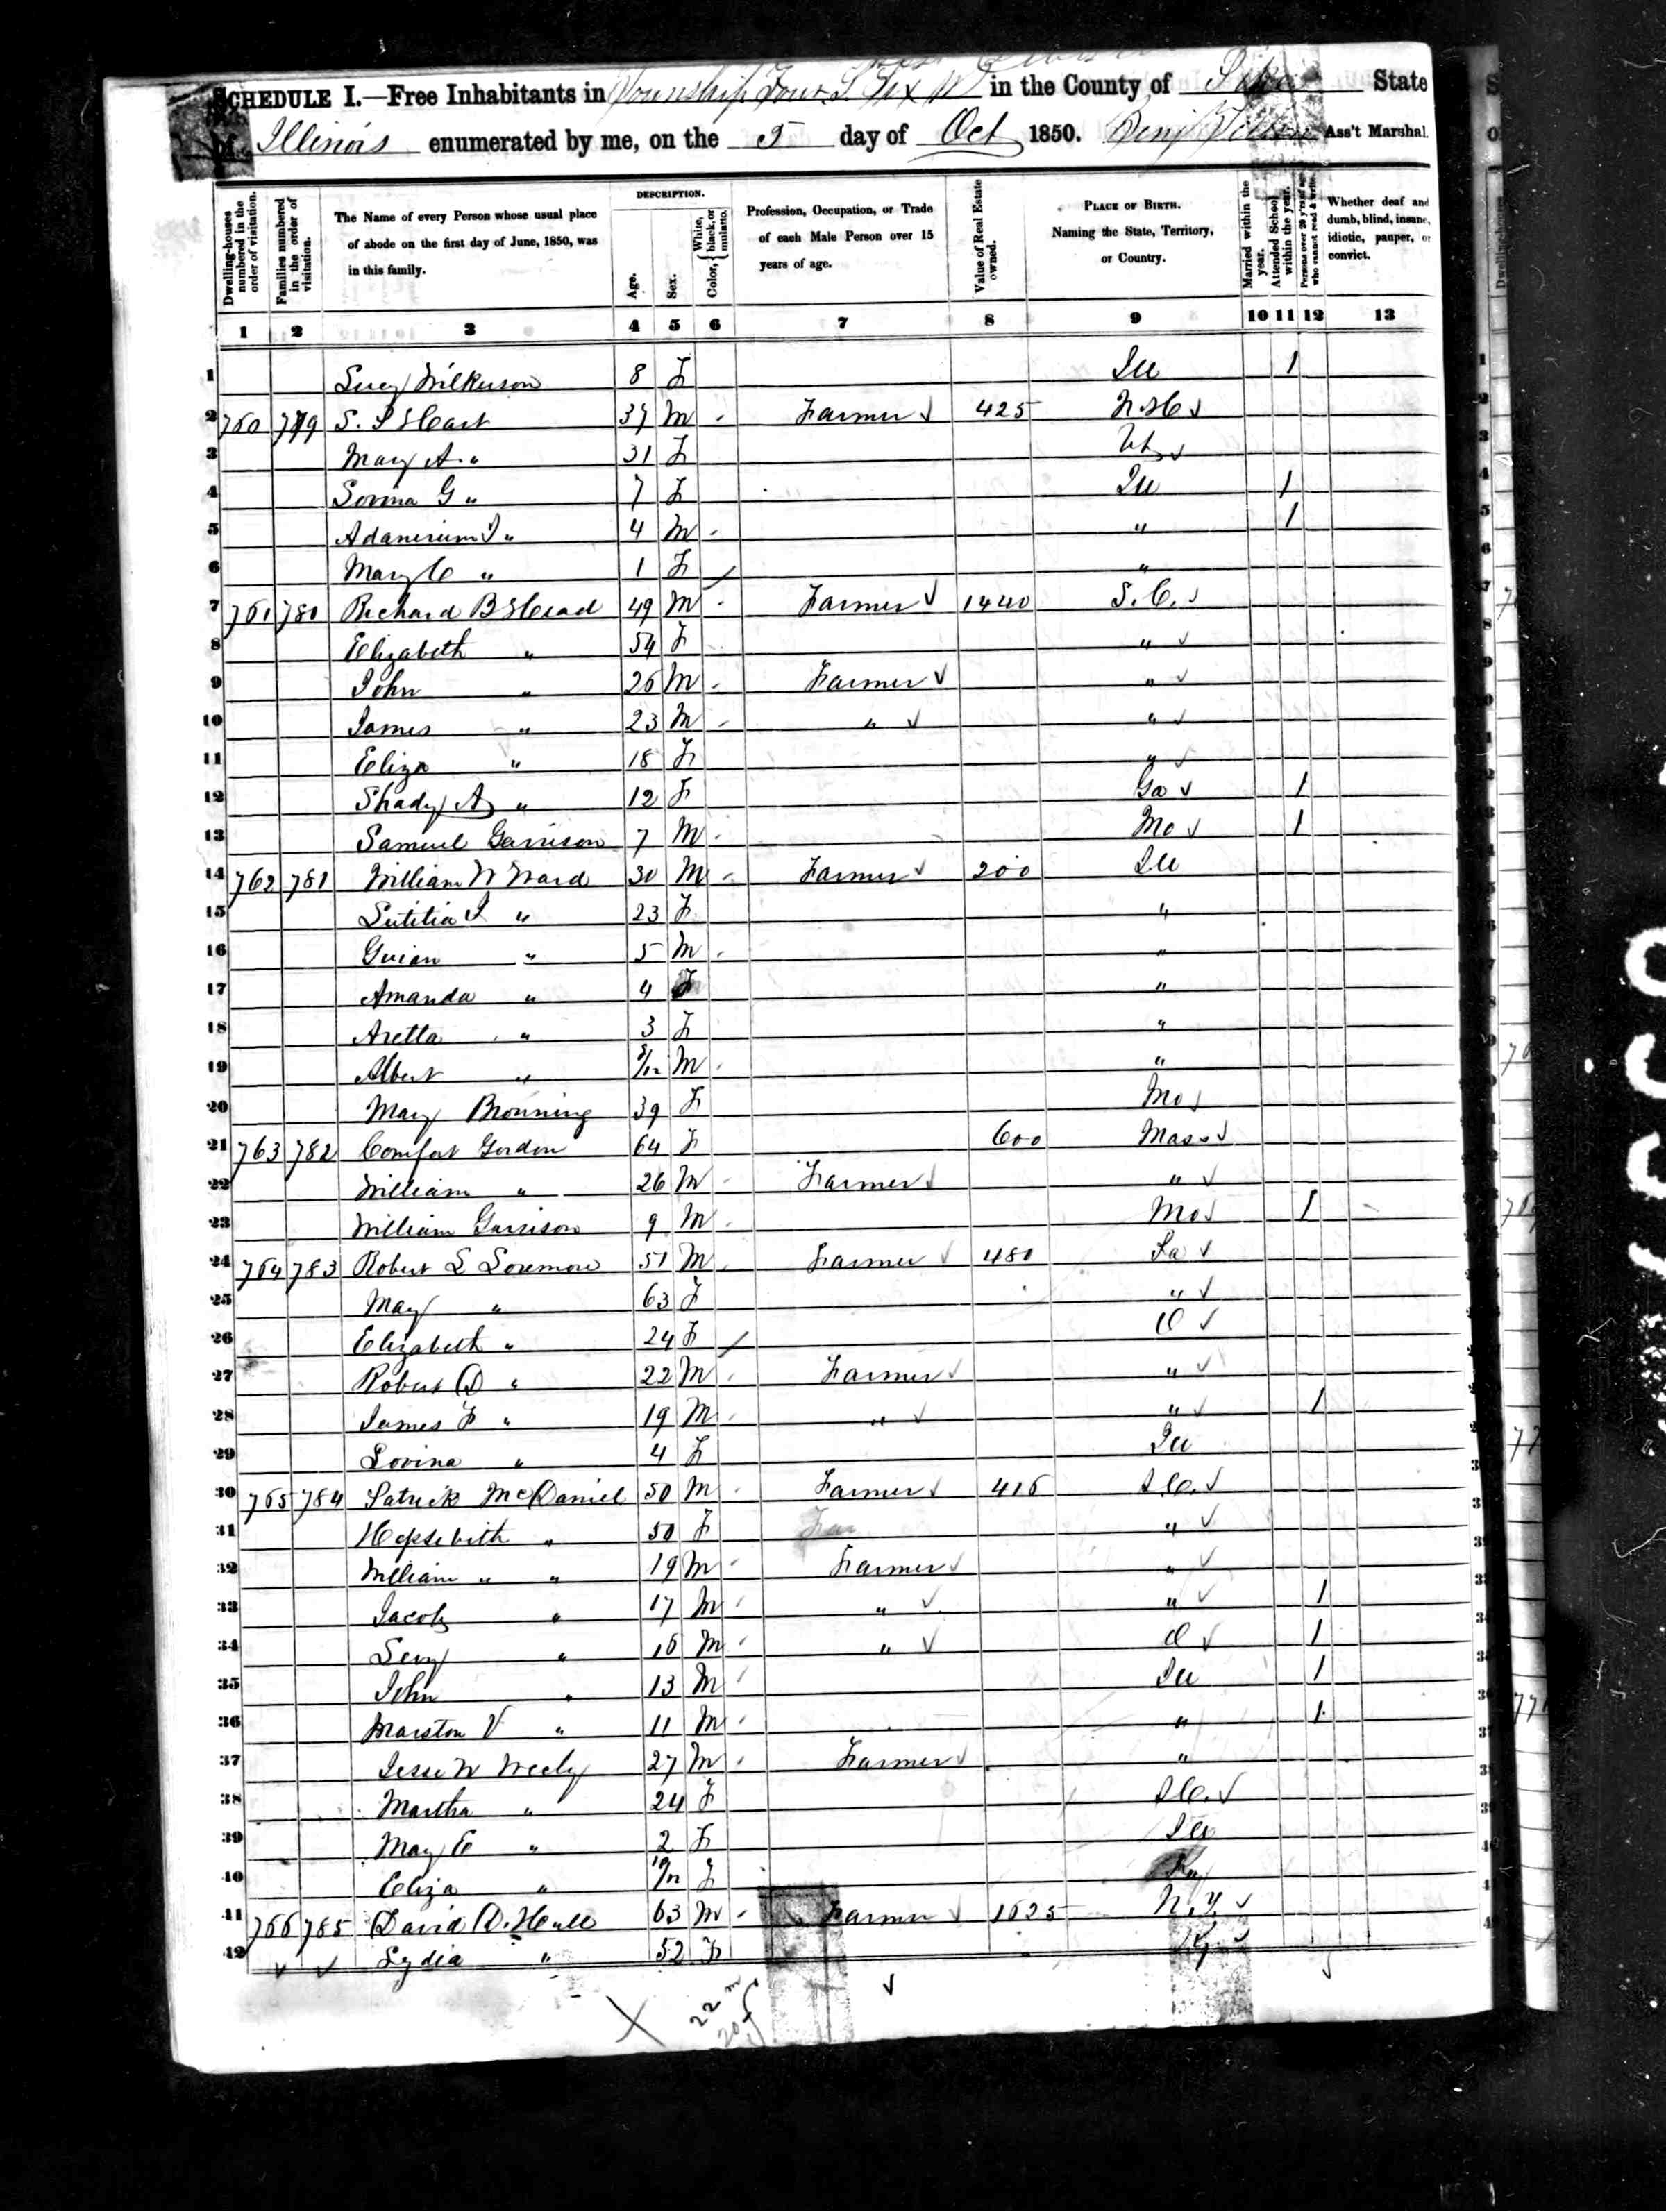 SCHEDULE I.—Free Inhabitants in Township Four S Six W in the County of Pike State
of Illinois enumerated by me, on the 5 day of Oct 1850. Benj Ass't Marshal.
Dwelling-houses numbered in the order of visitation.
Families numbered in the order of visitation.
The Name of every Person whose usual place of abode on the first day of June, 1850, was in this family.
DESCRIPTION.
Age.
Sex.
Color, { White, black, or mulatto.
Profession, Occupation, or Trade of each Male Person over 15 years of age.
Value of Real Estate owned.
PLACE OF BIRTH. Naming the State, Territory, or Country.
Married within the year.
Attended School within the year.
Persons over 20 y'rs of age who cannot read & write.
Whether deaf and dumb, blind, insane, idiotic, pauper, or convict.
1 2 3 4 5 6 7 8 9 10 11 12 13
1 Lucy Wilkerson 8 F Ill 1
2 760 779 S. Hart 37 M Farmer 425
3 Mary A. " 31 F
4 G " 7 F Ill 1
5 " 4 M " 1
6 Mary C " 1 F "
7 761 780 Richard B Head 49 M Farmer 1440 S.C.
8 Elizabeth " 54 F "
9 John " 26 M Farmer "
10 James " 23 M " "
11 Eliza " 18 F "
12 Shady A " 12 F Ga 1
13 Samuel Garrison 7 M Mo 1
14 762 781 William W Ward 30 M Farmer 200 Ill
15 Lutitia J " 23 F "
16 " 5 M "
17 Amanda " 4 F "
18 Aretta " 3 F "
19 Albert " /12 M "
20 Mary Browning 39 F Mo
21 763 782 Comfort Gordon 64 F 600 Mass
22 William " 26 M Farmer "
23 William Garrison 9 M Mo 1
24 764 783 Robert L 51 M Farmer 480 Pa
25 Mary " 63 F "
26 Elizabeth " 24 F O
27 Robert D " 22 M Farmer "
28 James F " 19 M " " 1
29 Lovina " 4 F Ill
30 765 784 Patrick McDaniel 50 M Farmer 416 S.C.
31 Hepsebith " 50 F "
32 William " " 19 M Farmer "
33 Jacob " 17 M " " 1
34 Levy " 16 M " O 1
35 John " 13 M Ill 1
36 Marston V " 11 M " 1
37 Jesse W Neely 27 M Farmer "
38 Martha " 24 F S.C.
39 Mary E " 2 F Ill
40 Eliza " 10/12 F
41 766 785 David D. Hull 63 M Farmer 1625 N.Y.
42 Lydia " 52 F
22 m